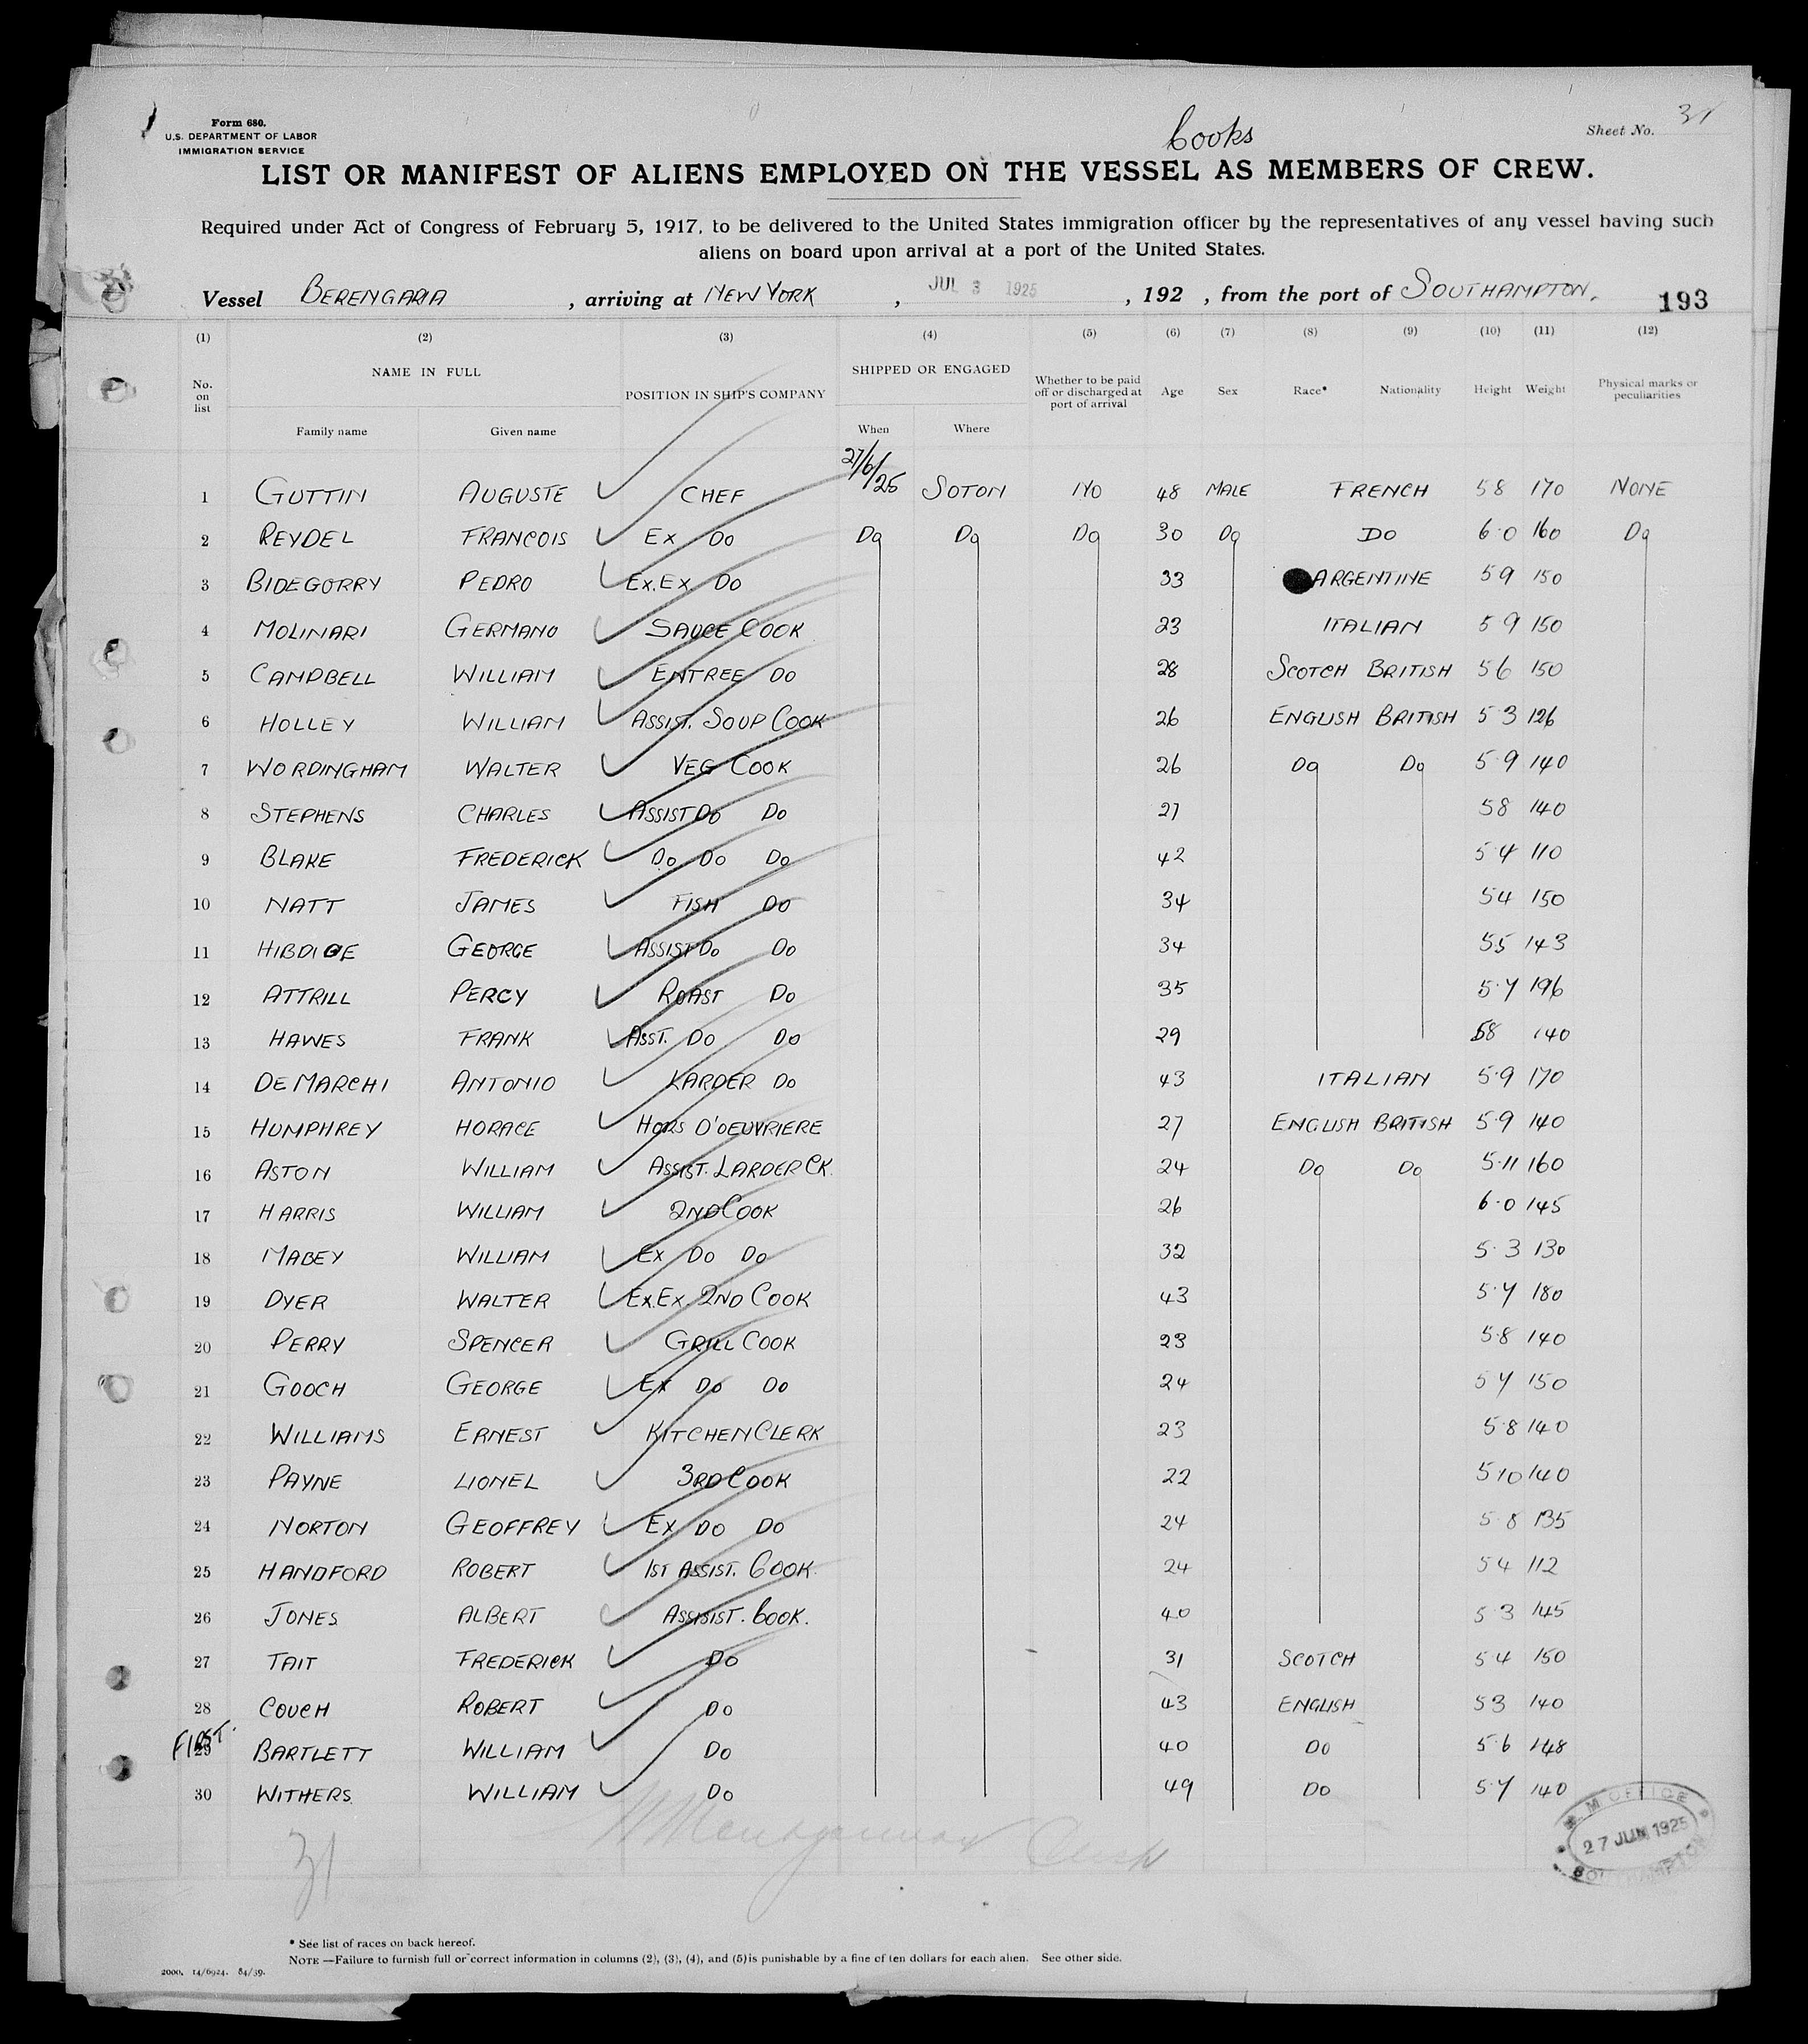 Cooks
Form 680.
U.S. DEPARTMENT OF LABOR
IMMIGRATION SERVICE
Sheet No. 31
LIST OR MANIFEST OF ALIENS EMPLOYED ON THE VESSEL AS MEMBERS OF CREW.
Required under Act of Congress of February 5, 1917, to be delivered to the United States immigration officer by the representatives of any vessel having such
aliens on board upon arrival at a port of the United States.
Vessel BERENGARIA , arriving at NEW YORK , JUL 3 1925 , 192 , from the port of SOUTHAMPTON. 193
(1) (2) (3) (4) (5) (6) (7) (8) (9) (10) (11) (12)
No. on list NAME IN FULL POSITION IN SHIP'S COMPANY SHIPPED OR ENGAGED Whether to be paid off or discharged at port of arrival Age Sex Race* Nationality Height Weight Physical marks or peculiarities
Family name Given name When Where
1 GUTTIN AUGUSTE CHEF 27/6/25 SOTON NO 48 MALE FRENCH 5 8 170 NONE
2 REYDEL FRANCOIS EX DO DO DO DO 30 DO DO 6·0 160 DO
3 BIDEGORRY PEDRO EX.EX DO 33 ARGENTINE 5 9 150
4 MOLINARI GERMANO SAUCE COOK 23 ITALIAN 5 9 150
5 CAMPBELL WILLIAM ENTREE DO 28 SCOTCH BRITISH 5 6 150
6 HOLLEY WILLIAM ASSIST. SOUP COOK 26 ENGLISH BRITISH 5 3 126
7 WORDINGHAM WALTER VEG COOK 26 DO DO 5·9 140
8 STEPHENS CHARLES ASSIST DO DO 27 5 8 140
9 BLAKE FREDERICK DO DO DO 42 5·4 110
10 NATT JAMES FISH DO 34 5 4 150
11 HIBDIGE GEORGE ASSIST DO DO 34 5 5 143
12 ATTRILL PERCY ROAST DO 35 5·7 196
13 HAWES FRANK ASST. DO DO 29 5 8 140
14 DE MARCHI ANTONIO LARDER DO 43 ITALIAN 5·9 170
15 HUMPHREY HORACE HORS D'OEUVRIERE 27 ENGLISH BRITISH 5·9 140
16 ASTON WILLIAM ASSIST. LARDER CK. 24 DO DO 5·11 160
17 HARRIS WILLIAM 2ND COOK 26 6·0 145
18 MABEY WILLIAM EX DO DO 32 5·3 130
19 DYER WALTER EX.EX. 2ND COOK 43 5·7 180
20 PERRY SPENCER GRILL COOK 23 5·8 140
21 GOOCH GEORGE EX DO DO 24 5 7 150
22 WILLIAMS ERNEST KITCHEN CLERK 23 5·8 140
23 PAYNE LIONEL 3RD COOK 22 5 10 140
24 NORTON GEOFFREY EX DO DO 24 5·8 135
25 HANDFORD ROBERT 1ST ASSIST. COOK. 24 5 4 112
26 JONES ALBERT ASSISIST. COOK. 40 5 3 145
27 TAIT FREDERICK DO 31 SCOTCH 5 4 150
28 COUCH ROBERT DO 43 ENGLISH 5 3 140
FIRST.
29 BARTLETT WILLIAM DO 40 DO 5·6 148
30 WITHERS WILLIAM DO 49 DO 5·7 140
31
27 JUN 1925
SOUTHAMPTON
* See list of races on back hereof.
NOTE —Failure to furnish full or correct information in columns (2), (3), (4), and (5) is punishable by a fine of ten dollars for each alien. See other side.
2000. 14/6924. 84/39.